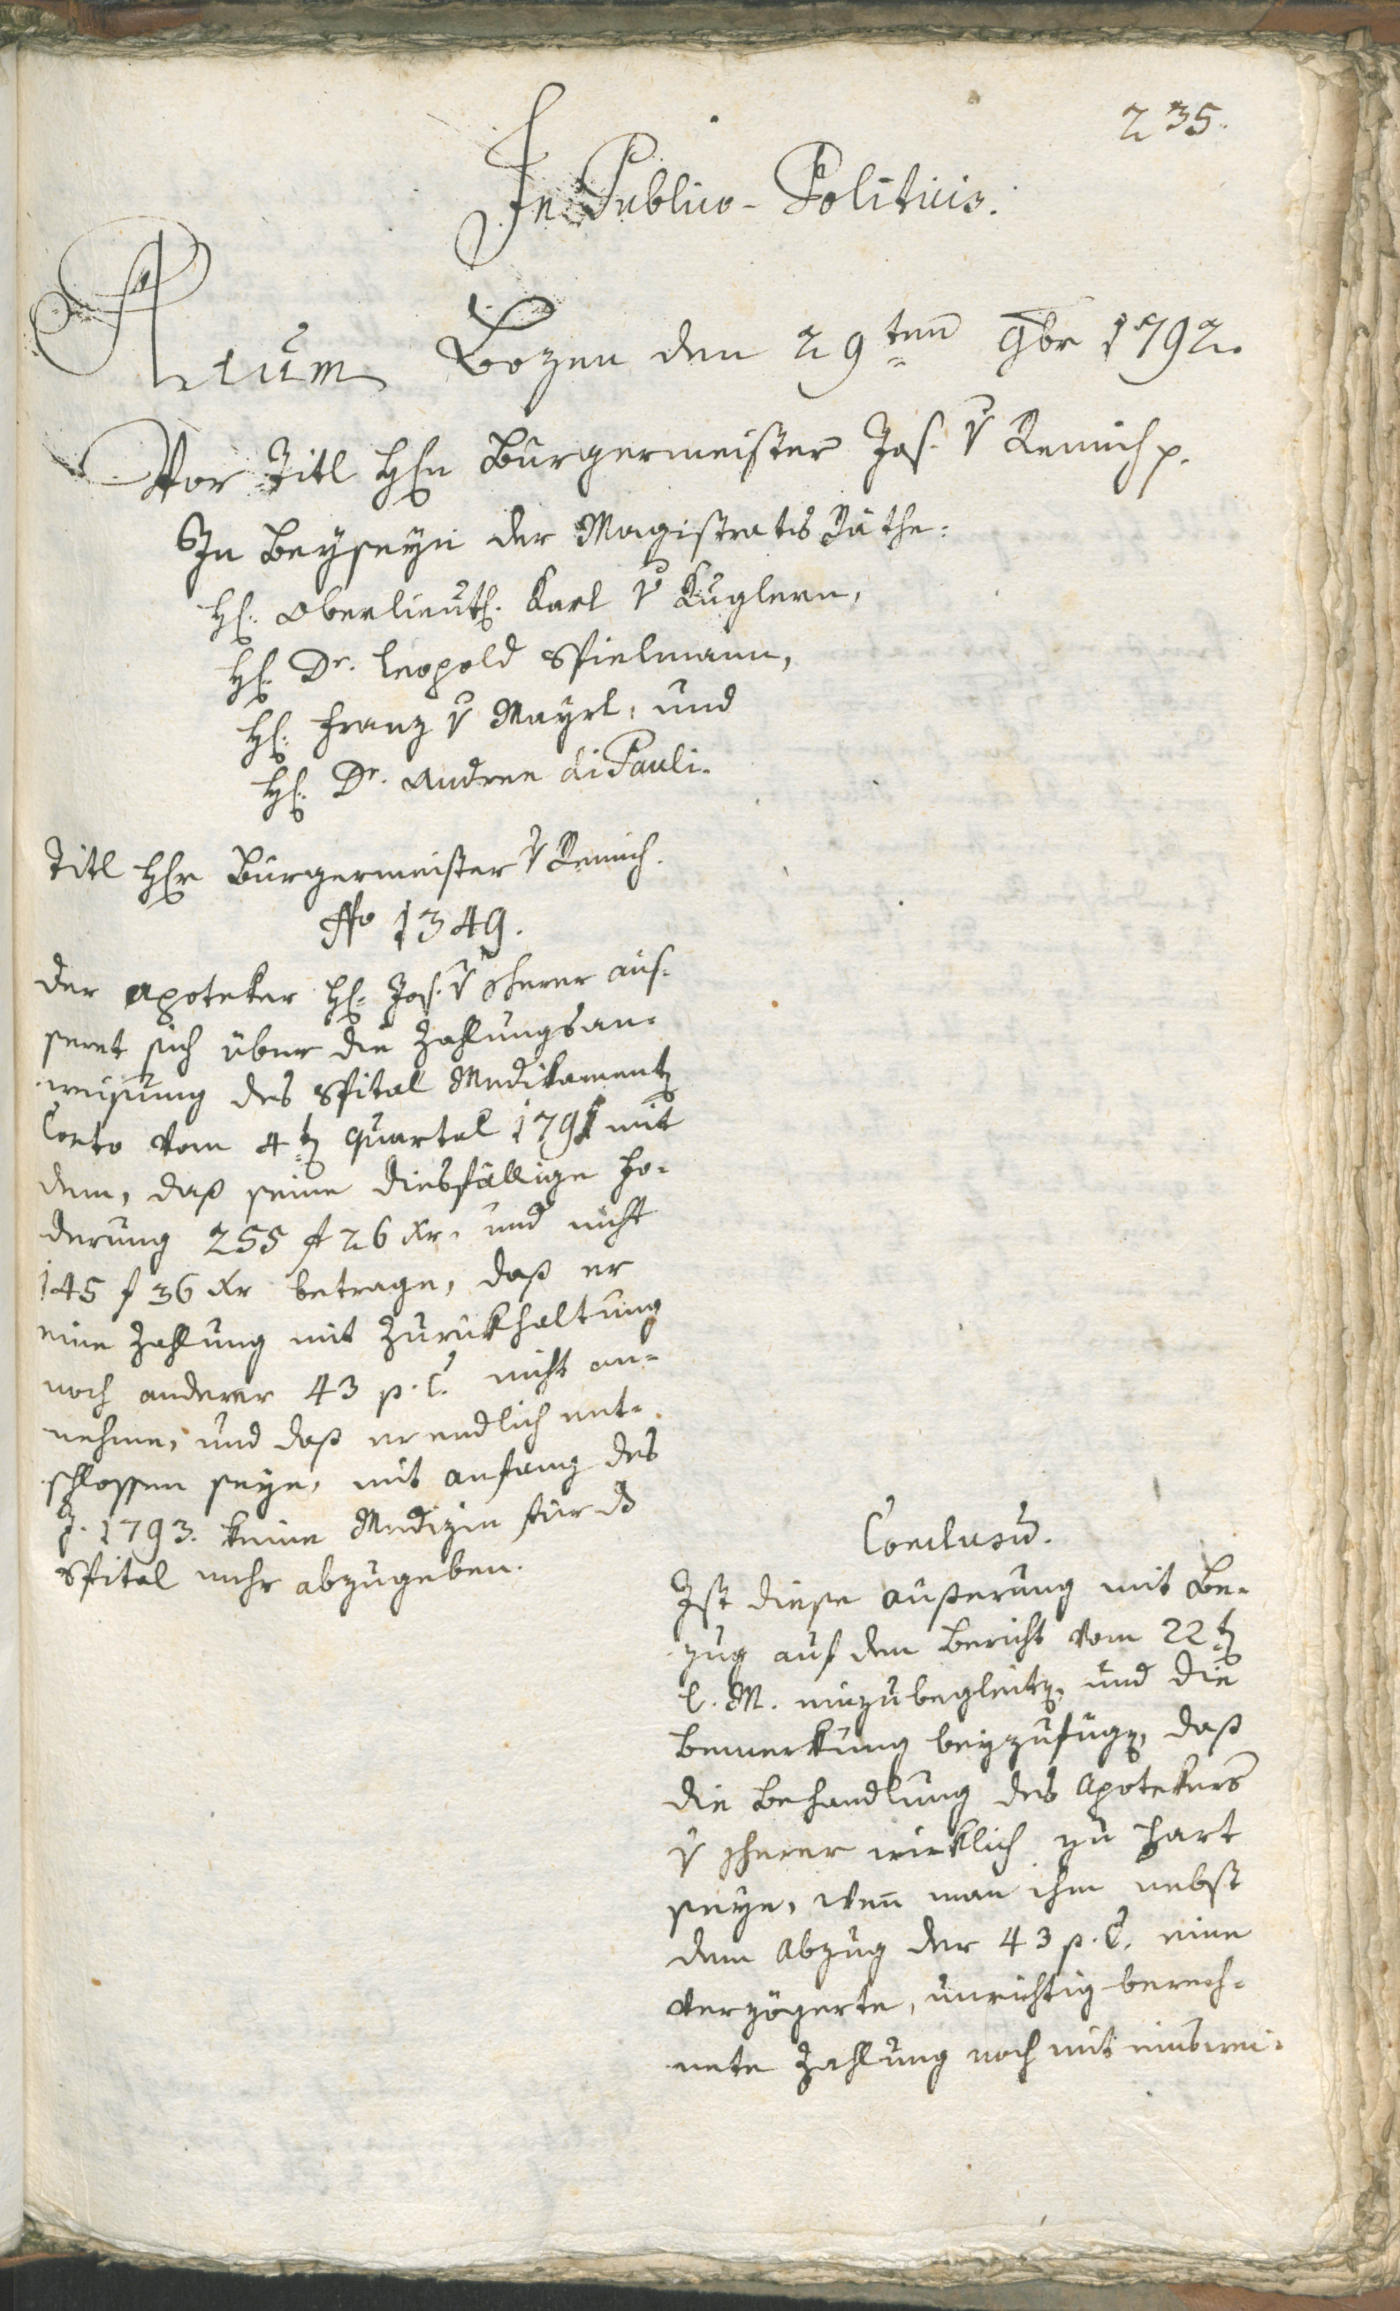 235.
In Publico-Politicis.
Actum Bozen den 29ten 9br 1792.
Vor Titl H̄n Burgermeister Jos. v Remich p.
In Beyseyn der Magistrats Räthe:
H. Oberlieut. Karl v Kuglern,
H. Dr. Leopold Spielmann,
H. Franz v Mayrl, und
H. Dr. Andree di Pauli.
Titl Hr Burgermeister v Remich.
No 1349.
Der Apoteker H. Jos. v Scherer aus-
seret sich über die Zahlungsan-
weisung des Spital Medikamenten
Conto vom 4ten Quartal 1791 mit
dem, daß seine diesfällige Fo-
derung 255 f 26 xr. und nicht
145 f 36 xr betrage, daß er
eine Zahlung mit Zurückhaltung
noch anderer 43 p. C. nicht an-
nehme, und daß er endlich ent-
schlossen seye, mit Anfang des
J. 1793. keine Medizin für d
Spital mehr abzugeben.
Conclusū.
Ist diese Außerung mit Be-
zug auf den Bericht vom 22ten
l. M. einzubegleiten, und die
Bemerkung beyzufügen, daß
die Behandlung des Apotekers
v Scherer wirklich zu hart
seye, wen̄ man ihm nebst
dem Abzug der 43 p. C. eine
verzögerte, unrichtig berech-
nete Zahlung noch mit einswei-